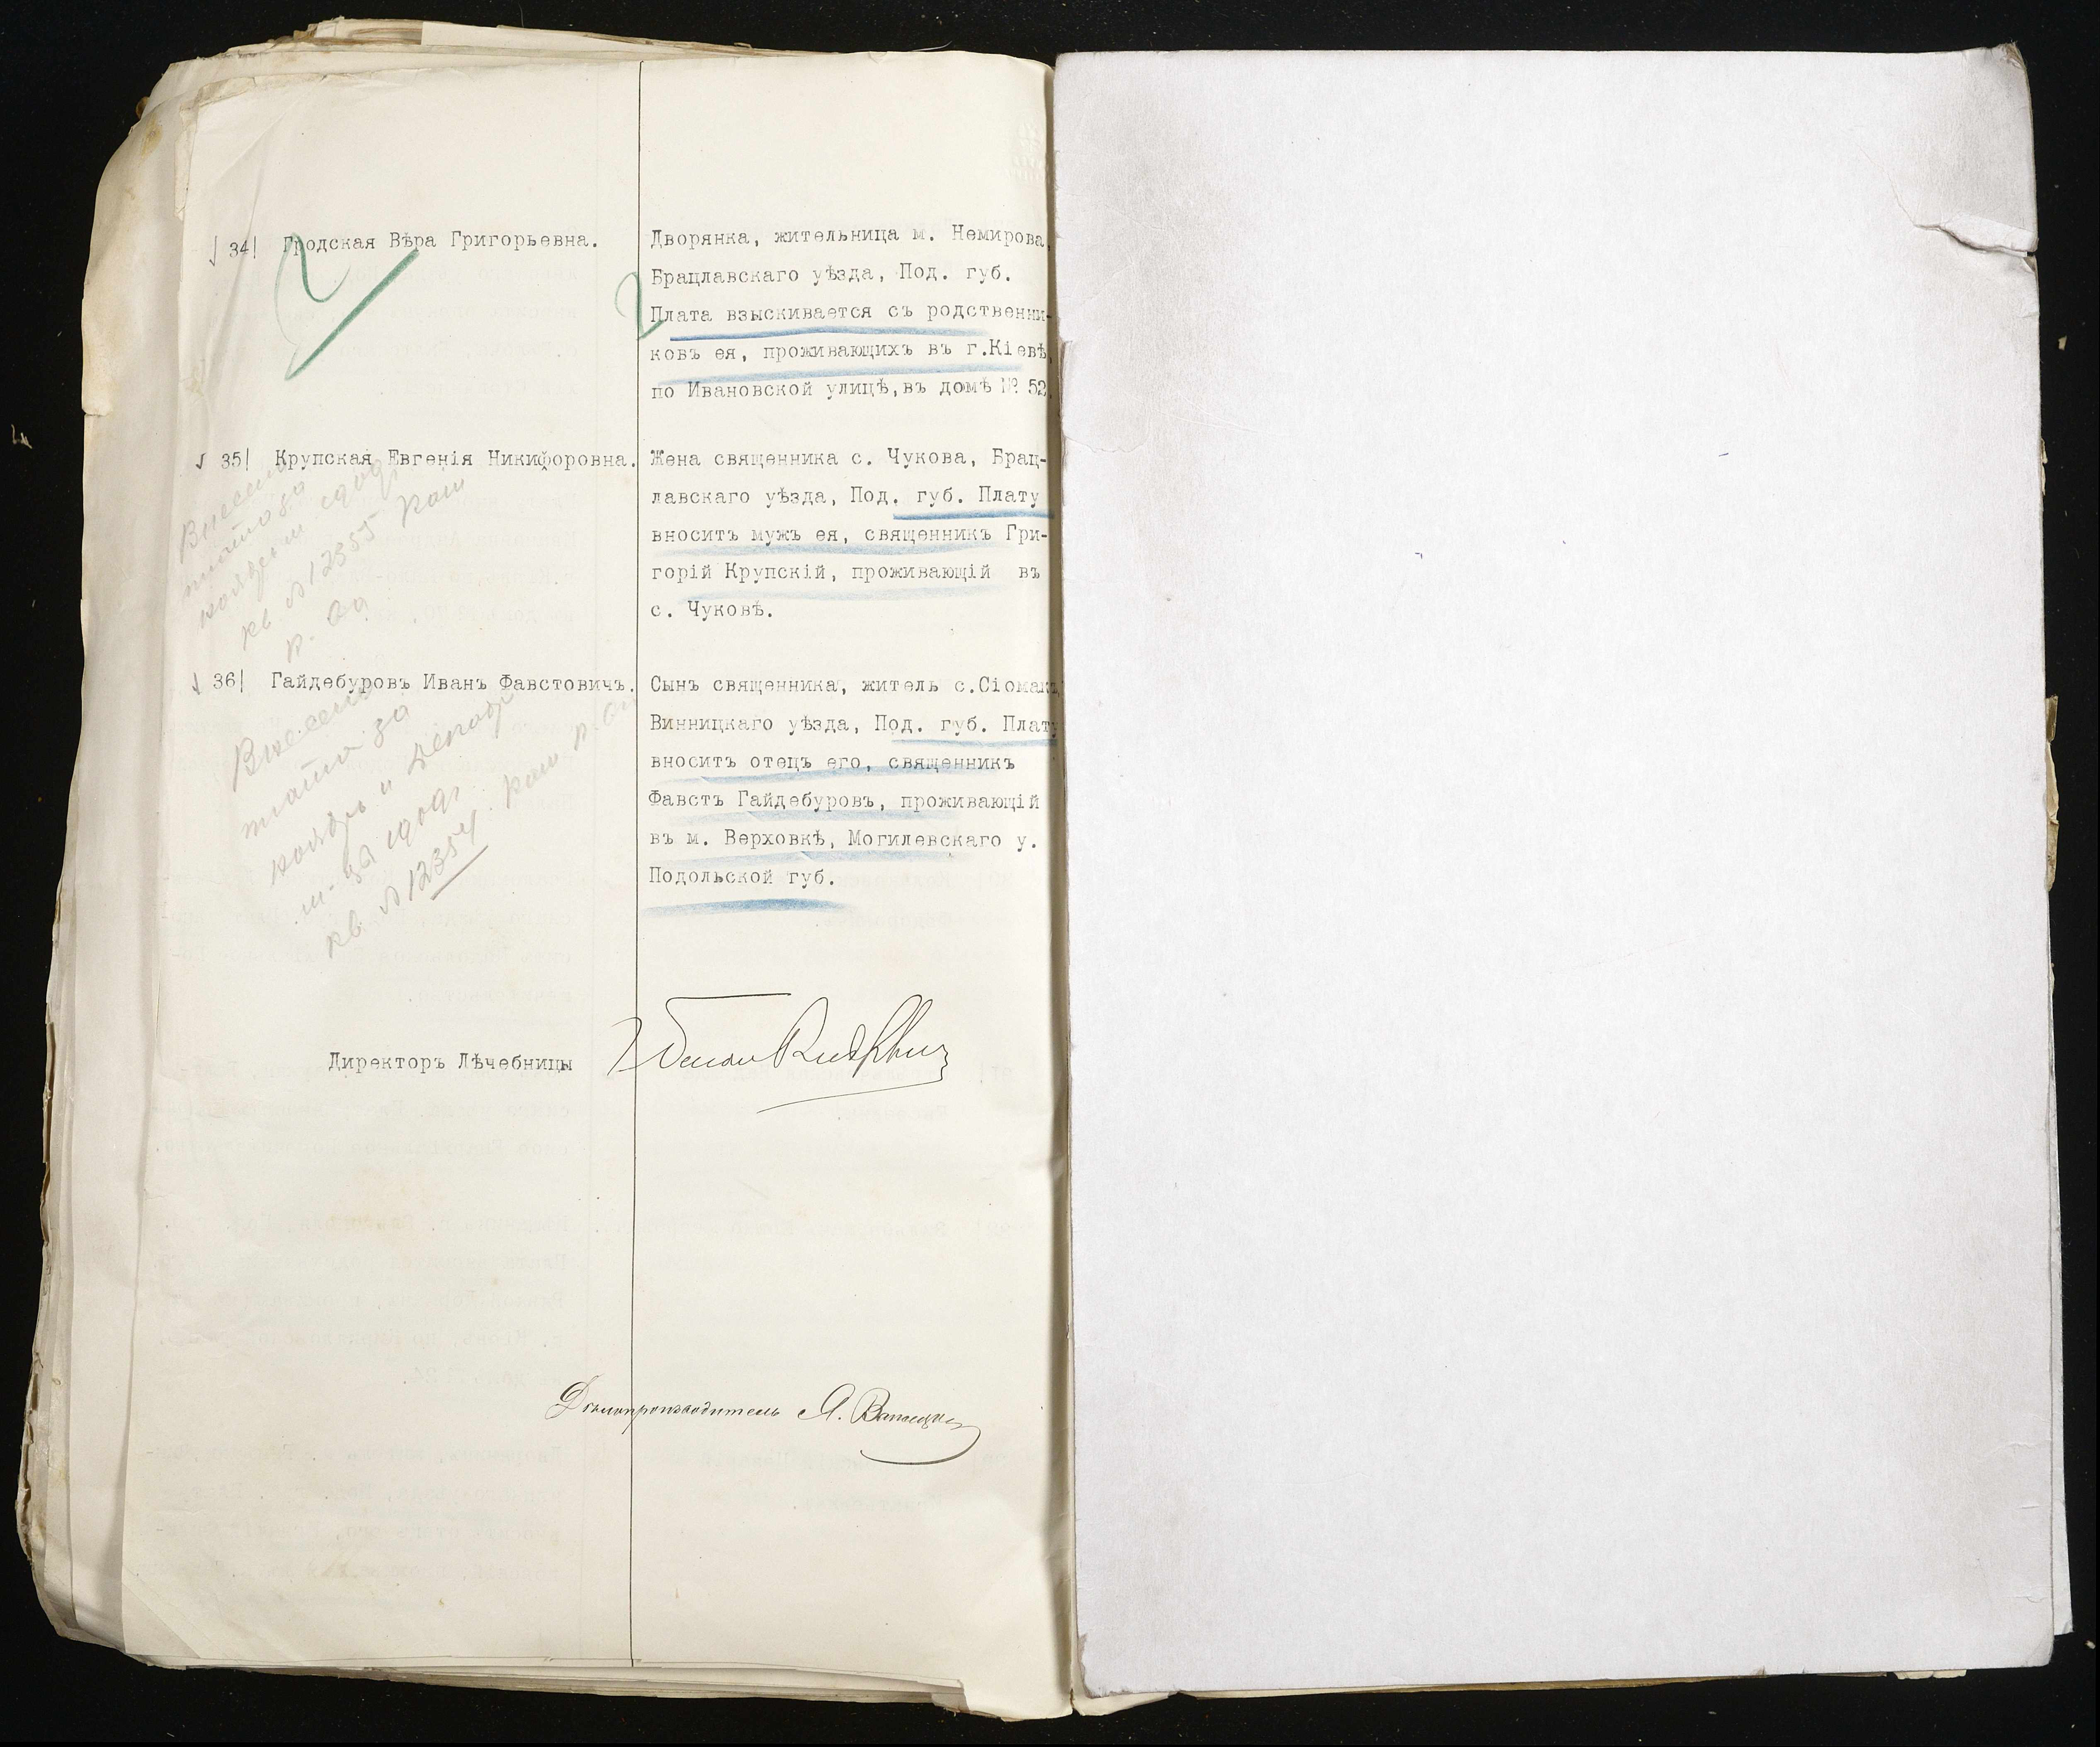 34| Гродская Вѣра Григорьевна.
Дворянка, жительница м. Немирова,
Брацлавскаго уѣзда, Под. губ.
Плата взыскивается съ родственни-
ковъ ея, проживающихъ въ г.Кіевѣ,
по Ивановской улицѣ,въ домѣ № 52.
35| Крупская Евгенія Никифоровна.
Жена священника с. Чукова, Брац-
лавскаго уѣзда, Под. губ. Плату
вноситъ мужъ ея, священникъ Гри-
горій Крупскій, проживающій въ
с. Чуковѣ.
Внесена
плата за
ноябрь м 1909г
кв. № 12355
36| Гайдебуровъ Иванъ Фавстовичъ.
Сынъ священника, житель с.Сіомакъ,
Винницкаго уѣзда, Под. губ. Плату
вноситъ отецъ его, священникъ
Фавстъ Гайдебуровъ, проживающій
въ м. Верховкѣ, Могилевскаго у.
Подольской губ.
Внесена
плата за
ноябрь и декабрь
м- за 1909г
кв. № 12354
Директоръ Лѣчебницы
Дѣлопроизводитель